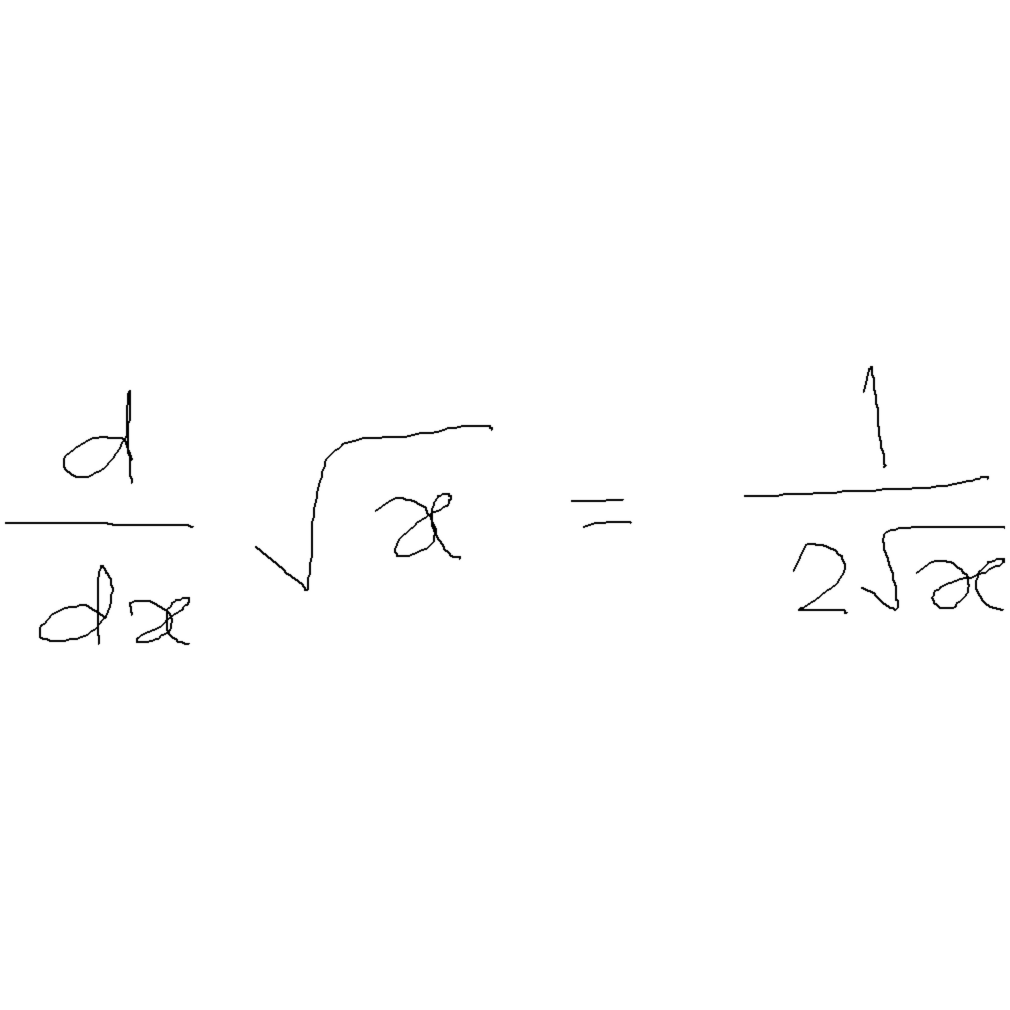 \frac{d}{dx} \sqrt{x} = \frac{1}{2\sqrt{x}}